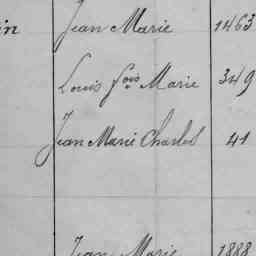 in Jean Marie 1463
Louis fois Marie 349
Jean Marie Charles 41
Jean Marie 1888